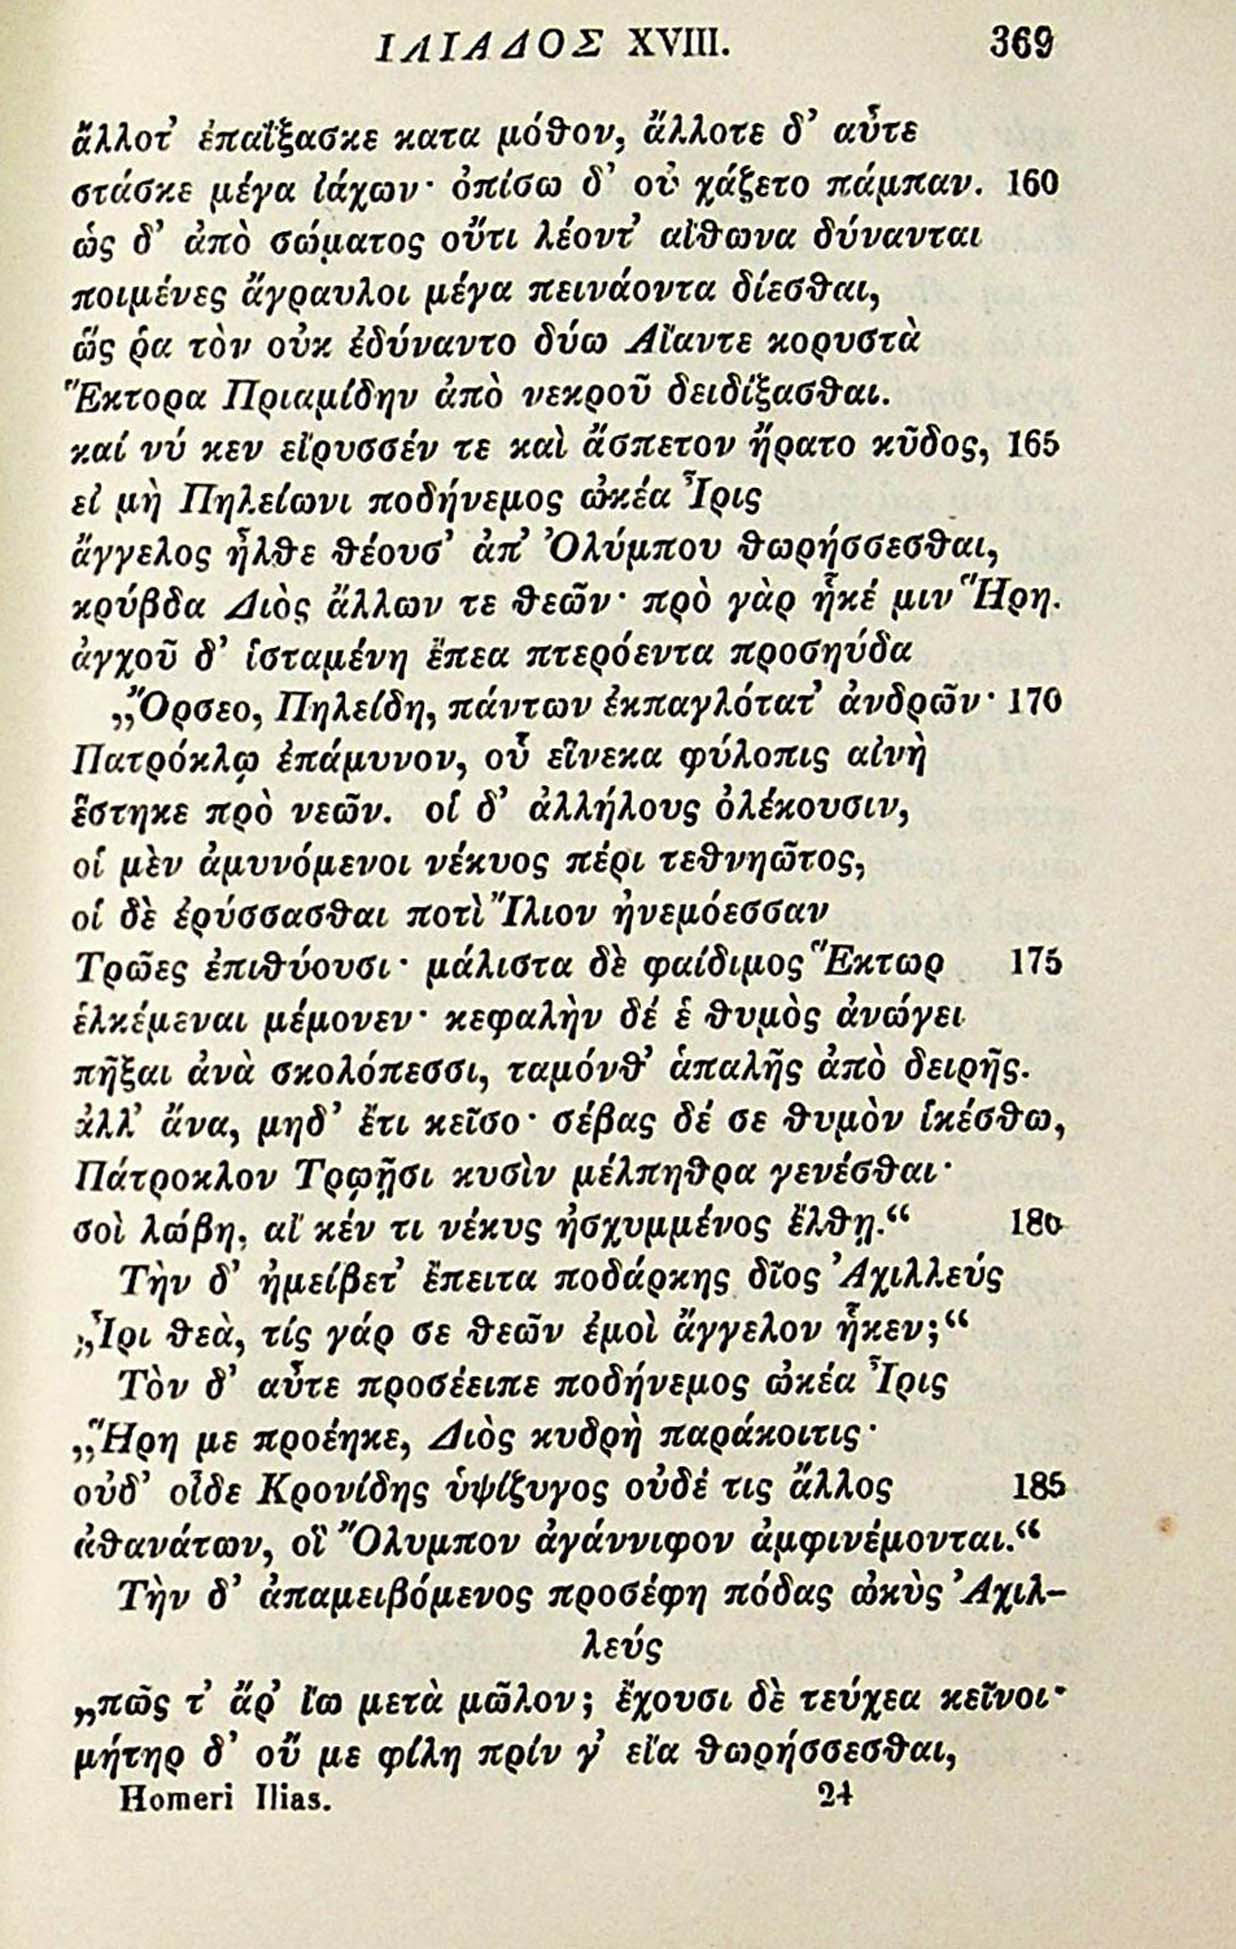 ΙΛΙΑΔΟΣ XVIII. 369
ἄλλοτ’ ἐπαΐξασκε κατα μόθον, ἄλλοτε δ’ αὖτε
στάσκε μέγα ἰάχων· ὀπίσω δ’ οὐ χάζετο πάμπαν. 160
ὡς δ’ ἀπὸ σώματος οὔτι λέοντ’ αἴθωνα δύνανται
ποιμένες ἄγραυλοι μέγα πεινάοντα δίεσθαι,
ὥς ῥα τὸν οὐκ ἐδύναντο δύω Αἴαντε κορυστὰ
Ἕκτορα Πριαμίδην ἀπὸ νεκροῦ δειδίξασθαι.
καί νύ κεν εἴρυσσέν τε καὶ ἄσπετον ἤρατο κῦδος, 165
εἰ μὴ Πηλείωνι ποδήνεμος ὠκέα Ἶρις
ἄγγελος ἦλθε θέουσ’ ἀπ’ Ὀλύμπου θωρήσσεσθαι,
κρύβδα Διὸς ἄλλων τε θεῶν· πρὸ γὰρ ἧκέ μιν Ἥρη.
ἀγχοῦ δ’ ἱσταμένη ἔπεα πτερόεντα προσηύδα
„Ὄρσεο, Πηλείδη, πάντων ἐκπαγλότατ’ ἀνδρῶν· 170
Πατρόκλῳ ἐπάμυνον, οὗ εἵνεκα φύλοπις αἰνὴ
ἕστηκε πρὸ νεῶν. οἱ δ’ ἀλλήλους ὀλέκουσιν,
οἱ μὲν ἀμυνόμενοι νέκυος πέρι τεθνηῶτος,
οἱ δὲ ἐρύσσασθαι ποτὶ Ἴλιον ἠνεμόεσσαν
Τρῶες ἐπιθύουσι· μάλιστα δὲ φαίδιμος Ἕκτωρ 175
ἑλκέμεναι μέμονεν· κεφαλὴν δέ ἑ θυμὸς ἀνώγει
πῆξαι ἀνὰ σκολόπεσσι, ταμόνθ’ ἁπαλῆς ἀπὸ δειρῆς.
ἀλλ’ ἄνα, μηδ’ ἔτι κεῖσο· σέβας δέ σε θυμὸν ἱκέσθω,
Πάτροκλον Τρῳῇσι κυσὶν μέλπηθρα γενέσθαι·
σοὶ λώβη, αἴ κέν τι νέκυς ᾐσχυμμένος ἔλθῃ.“ 180
Τὴν δ’ ἠμείβετ’ ἔπειτα ποδάρκης δῖος Ἀχιλλεύς
„Ἶρι θεὰ, τίς γάρ σε θεῶν ἐμοὶ ἄγγελον ἧκεν;“
Τὸν δ’ αὖτε προσέειπε ποδήνεμος ὠκέα Ἶρις
„Ἥρη με προέηκε, Διὸς κυδρὴ παράκοιτις·
οὐδ’ οἶδε Κρονίδης ὑψίζυγος οὐδέ τις ἄλλος 185
ἀθανάτων, οἳ Ὄλυμπον ἀγάννιφον ἀμφινέμονται.“
Τὴν δ’ ἀπαμειβόμενος προσέφη πόδας ὠκὺς Ἀχιλ-
λεύς
„πῶς τ’ ἄρ’ ἴω μετὰ μῶλον; ἔχουσι δὲ τεύχεα κεῖνοι·
μήτηρ δ’ οὔ με φίλη πρίν γ’ εἴα θωρήσσεσθαι,
Homeri Ilias. 24